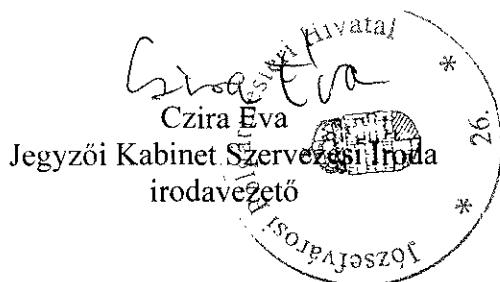 Czira Éva
Czira Éva
Jegyzői Kabinet Szervezési Iroda
irodavezető
Józsefvárosi Polgármesteri Hivatal
* 26. *